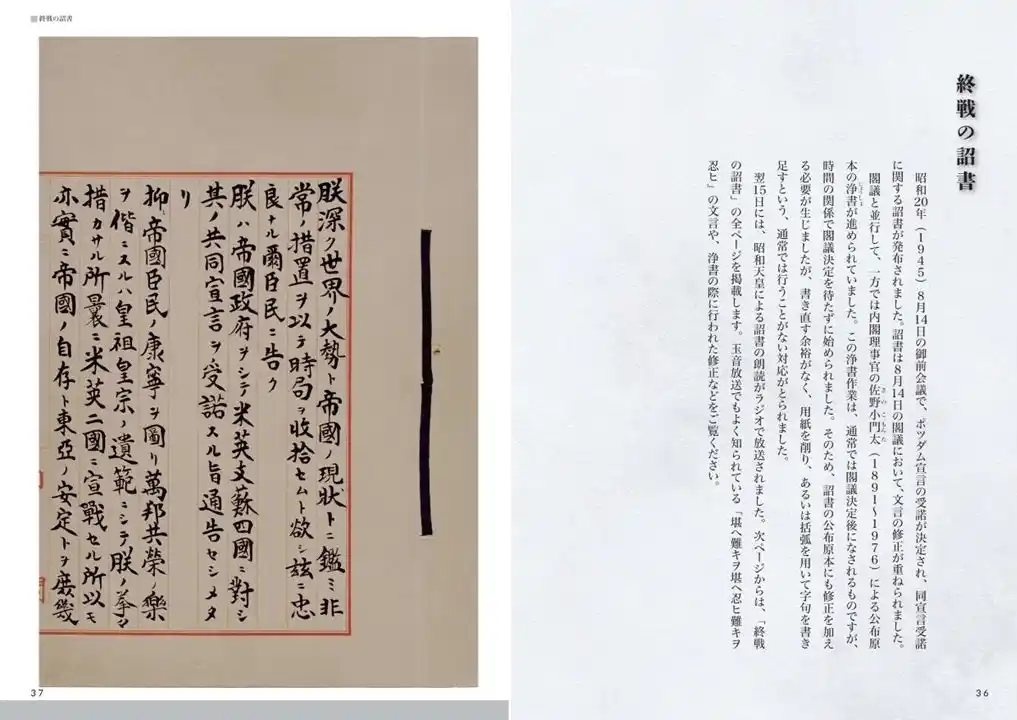 終戦の詔書
昭和20年(1945)8月14日の御前会議で、ポツダム宣言の受諾が決定され、同宣言受諾
に関する詔書が発布されました。詔書は8月14日の閣議において、文言の修正が重ねられました。
閣議と並行して、一方では内閣理事官の佐野小門太(1891〜1976)による公布原
本の浄書が進められていました。この浄書作業は、通常では閣議決定後になされるものですが、
時間の関係で閣議決定を待たずに始められました。そのため、詔書の公布原本にも修正を加え
る必要が生じましたが、書き直す余裕がなく、用紙を削り、あるいは括弧を用いて字句を書き
足すという、通常では行うことがない対応がとられました。
翌15日には、昭和天皇による詔書の朗読がラジオで放送されました。次ページからは、「終戦
の詔書」の全ページを掲載します。玉音放送でもよく知られている「堪ヘ難キヲ堪ヘ忍ヒ難キヲ
忍ヒ」の文言や、浄書の際に行われた修正などをご覧ください。
36
終戦の詔書
朕深ク世界ノ大勢ト帝國ノ現狀トニ鑑ミ非
常ノ措置ヲ以テ時局ヲ收拾セムト欲シ茲ニ忠
良ナル爾臣民ニ告ク
朕ハ帝國政府ヲシテ米英支蘇四國ニ對シ
其ノ共同宣言ヲ受諾スル旨通告セシメタ
リ
抑〻帝國臣民ノ康寧ヲ圖リ萬邦共榮ノ樂
ヲ偕ニスルハ皇祖皇宗ノ遺範ニシテ朕ノ拳々
措カサル所曩ニ米英二國ニ宣戰セル所以モ
亦實ニ帝國ノ自存ト東亞ノ安定トヲ庶幾
37